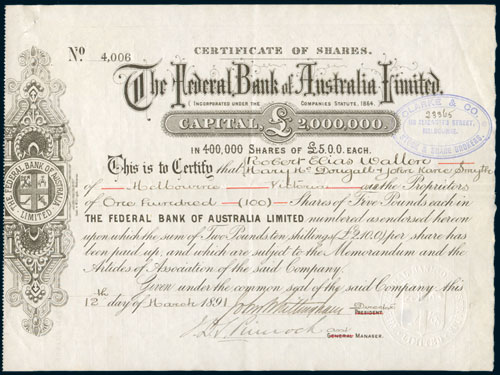 CERTIFICATE OF SHARES.
No. 4,006
The Federal Bank of Australia Limited.
( INCORPORATED UNDER THE COMPANIES STATUTE, 1864.
CAPITAL, £ 2,000,000
IN 400,000 SHARES OF £5.0.0. EACH.
CLARKE & CO.
23365
MELBOURNE.
STOCK & SHARE BROKERS.
This is to Certify that Robert Elias Wallen
Harry McDougall & John Kane Smyth
of Melbourne Victoria are the Proprietors
of One hundred (100) Shares of Five Pounds each in
THE FEDERAL BANK OF AUSTRALIA LIMITED numbered as endorsed hereon
upon which the sum of Two Pounds ten shillings (£2.10.0) per share has
been paid up, and which are subject to the Memorandum and the
Articles of Association of the said Company.
Given under the common seal of the said Company this
the 12 day of March 1891
John Whittingham
PRESIDENT.
GENERAL MANAGER.
THE FEDERAL BANK OF AUSTRALIA
LIMITED